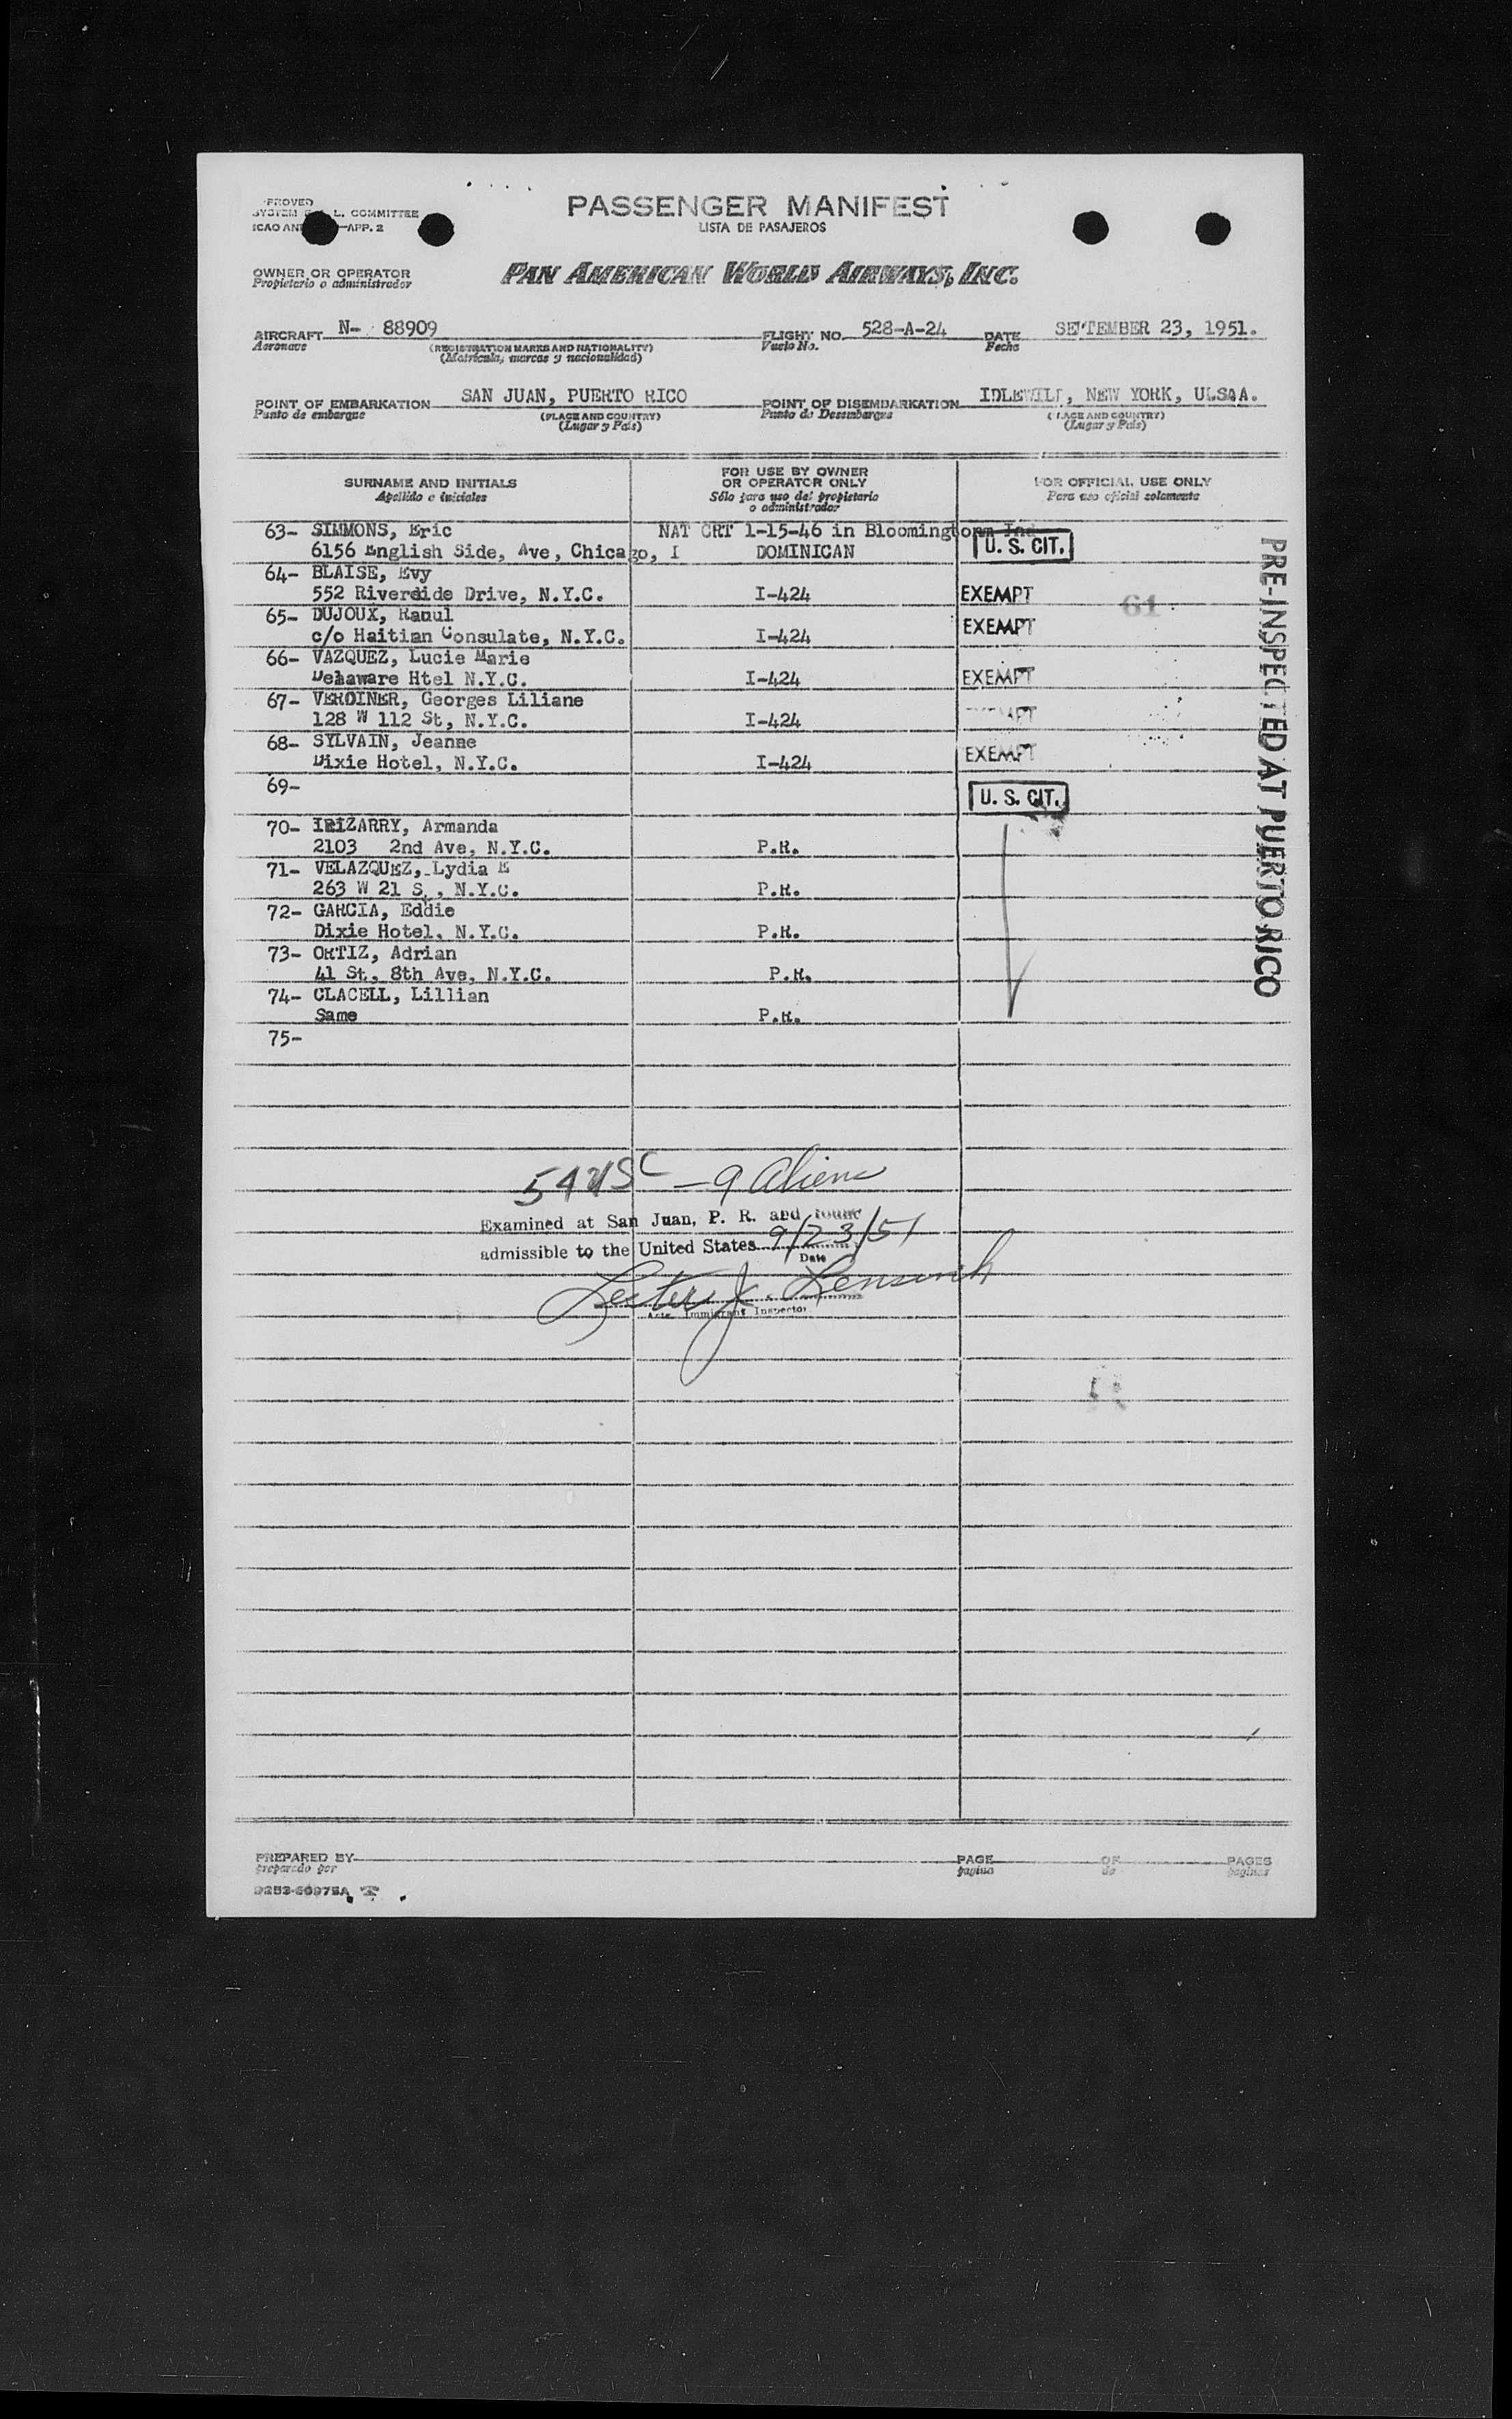 PASSENGER MANIFEST
LISTA DE PASAJEROS
L. COMMITTEE
ICAO APP. 2
OWNER OR OPERATOR
Propietario o administrador
PAN AMERICAN WORLD AIRWAYS, INC.
AIRCRAFT N- 88909 FLIGHT NO. 528-A-24 DATE SEPTEMBER 23, 1951.
Aeronave (REGISTRATION MARKS AND NATIONALITY) Vuelo No. Fecha
(Matrícula, marcas y nacionalidad)
POINT OF EMBARKATION SAN JUAN, PUERTO RICO POINT OF DISEMBARKATION IDLEWILD, NEW YORK, U.S.A.
Punto de embarque (PLACE AND COUNTRY) Punto de Desembarque (PLACE AND COUNTRY)
(Lugar y País) (Lugar y País)
SURNAME AND INITIALS FOR USE BY OWNER OR OPERATOR ONLY FOR OFFICIAL USE ONLY
Apellido e iniciales Sólo para uso del propietario o administrador Para uso oficial solamente
63- SIMMONS, Eric NAT CRT 1-15-46 in Bloomington Ind
6156 English Side, Ave, Chicago, I DOMINICAN U. S. CIT.
64- BLAISE, Evy
552 Riverdide Drive, N.Y.C. I-424 EXEMPT 61
65- DUJOUX, Raoul
c/o Haitian Consulate, N.Y.C. I-424 EXEMPT
66- VAZQUEZ, Lucie Marie
Delaware Htel N.Y.C. I-424 EXEMPT
67- VERDINER, Georges Liliane
128 W 112 St, N.Y.C. I-424 EXEMPT
68- SYLVAIN, Jeanne
Dixie Hotel, N.Y.C. I-424 EXEMPT
69- U. S. CIT.
70- IRIZARRY, Armanda
2103 2nd Ave, N.Y.C. P.R.
71- VELAZQUEZ, Lydia E
263 W 21 S, N.Y.C. P.R.
72- GARCIA, Eddie
Dixie Hotel, N.Y.C. P.R.
73- ORTIZ, Adrian
41 St, 8th Ave, N.Y.C. P.R.
74- CLACELL, Lillian
Same P.R.
75-
PRE-INSPECTED AT PUERTO RICO
54 USC - 9 Aliens
Examined at San Juan, P. R. and found
admissible to the United States 9/23/51
Date
Lester J.
Immigrant Inspector
PREPARED BY PAGE OF PAGES
preparado por pagina de paginas